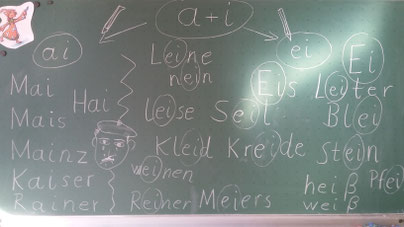 a + i
ai
ei
Leine
nein
Ei
Mai
Eis
Leiter
Hai
Mais
leise
Seil
Blei
Mainz
Kleid
Kreide
Stein
Kaiser
weinen
heiß
Pfeil
Rainer
Reiner
Meiers
weiß